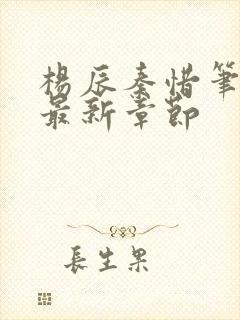 楊辰秦惜筆
最新章節
長生果